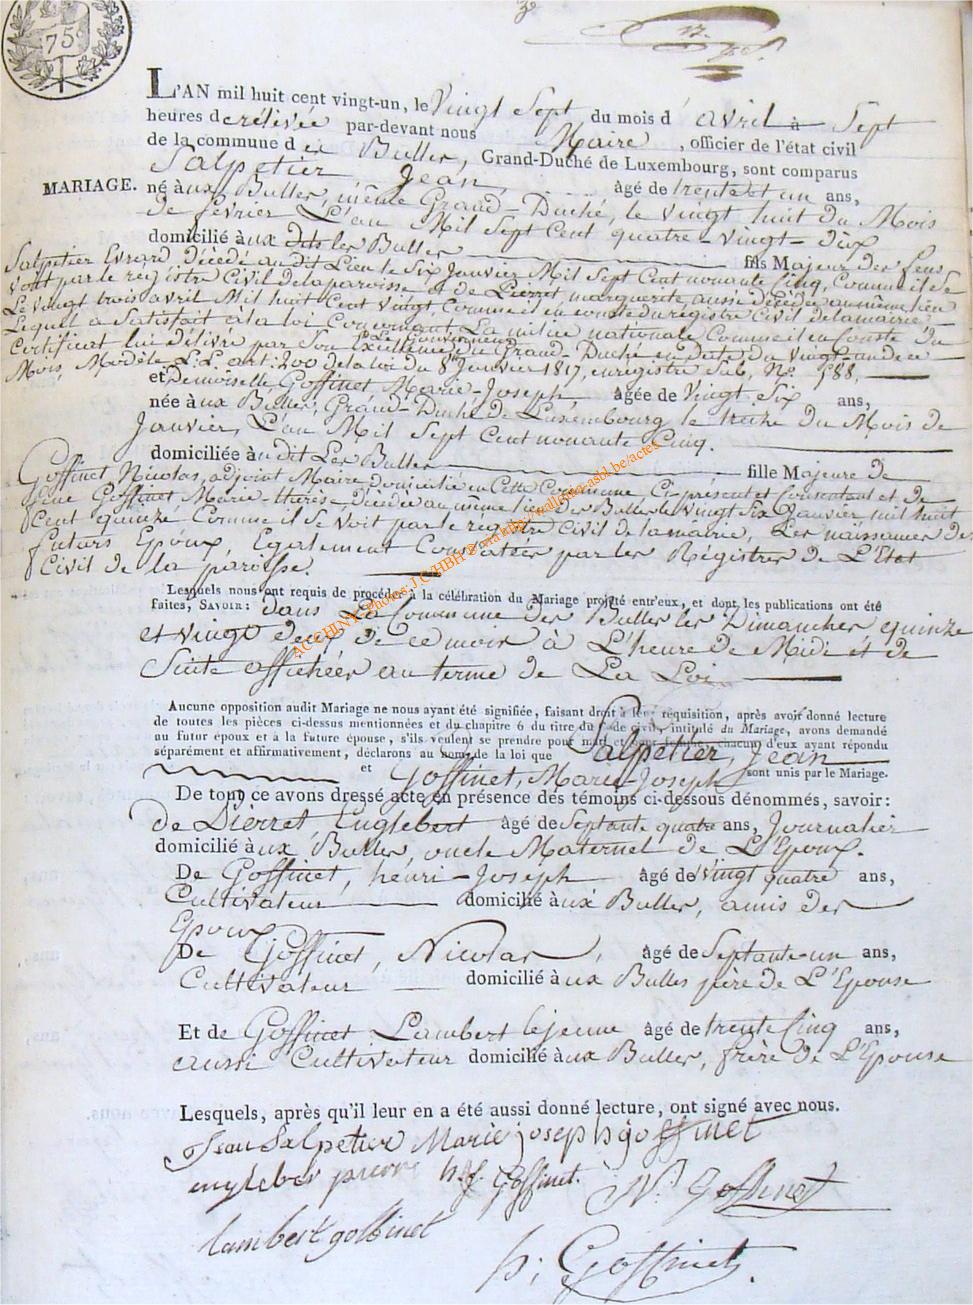 75
L'AN mil huit cent vingt-un, le Vingt Sept du mois d'avril à Sept
heures de rélivée par-devant nous Maire, officier de l'état civil
de la commune des Buller, Grand-Duché de Luxembourg, sont comparus
MARIAGE.
Salpetier Jean, âgé de trente et un ans,
né à ux Buller, même Grand-Duché, le vingt huit du Mois
de février L'an Mil Sept Cent quatre-vingt-dix
domicilié à ux dits les Buller fils Majeur des feus
Salpetier Evrard Décédé au dit Lieu le Six Janvier Mil Sept Cent nonante Cinq, Comme il se
voit par le registre Civil de la paroisse et de Pierret, marguerite aussi décédée au même lieu
Le vingt trois avril Mil huit Cent vingt, Comme il en conste du registre Civil de la mairie,
Lequel a Satisfait à la loi Concernant La milice nationale Comme il en Conste du
Certificat lui délivré par Son Excellence Le Gouverneur du Grand-Duché en date du vingt un de ce
Mois, Modèle L.L. art: 200 de la loi du 8 Janvier 1817, enregistré Sub, No. 588.
et Demoiselle Goffinet Marie-Joseph âgée de Vingt Six ans,
née à ux Buller, Grand-Duché de Luxembourg le treize du Mois de
Janvier, L'an Mil Sept Cent nonante Cinq.
domiciliée à u dit Les Buller fille Majeure de
Goffinet Nicolas, adjoint Maire domicilié en Cette Commune, Ci-présent et Consentant et de
feue Goffinet, Marie thérèse, Décédée au même lieu des Buller le vingt Six Janvier mil huit
Cent quinze, Comme il Se voit par le registre Civil de la mairie, Les naissances des
futurs Epoux, Egalement Constatées par les Régistres de L'Etat
Civil de la paroisse.
Lesquels nous ont requis de procéder à la célébration du Mariage projeté entr'eux, et dont les publications ont été
faites, SAVOIR: dans La Commune des Buller les Dimanches quinze
et vingt deux de ce mois à L'heure de Midi et de
Suite affichées au terme de La Loi
Aucune opposition audit Mariage ne nous ayant été signifiée, faisant droit à leur réquisition, après avoir donné lecture
de toutes les pièces ci-dessus mentionnées et du chapitre 6 du titre du Code civil, intitulé du Mariage, avons demandé
au futur époux et à la future épouse, s'ils veulent se prendre pour mari et pour femme, chacun d'eux ayant répondu
séparément et affirmativement, déclarons au nom de la loi que Salpetier, Jean
et Goffinet, Marie Joseph sont unis par le Mariage.
De tout ce avons dressé acte en présence des témoins ci-dessous dénommés, savoir:
de Pierret, Englebert âgé de Septante quatre ans, Journalier
domicilié à ux Buller, oncle Maternel de L'Epoux.
De Goffinet, henri-Joseph âgé de vingt quatre ans,
Cultivateur domicilié à ux Buller, amis des
Epoux
De Goffinet, Nicolas, âgé de Septante-un ans,
Cultivateur domicilié à ux Bulles père de L'Epouse
Et de Goffinet Lambert lejeune âgé de trente Cinq ans,
aussi Cultivateur domicilié à ux Buller, frère de L'Epouse
Lesquels, après qu'il leur en a été aussi donné lecture, ont signé avec nous.
Jean Salpetier Marie joseph goffinet
englebert pierre h.j. Goffinet. N. Goffinet
lambert goffinet
h; Goffinet.